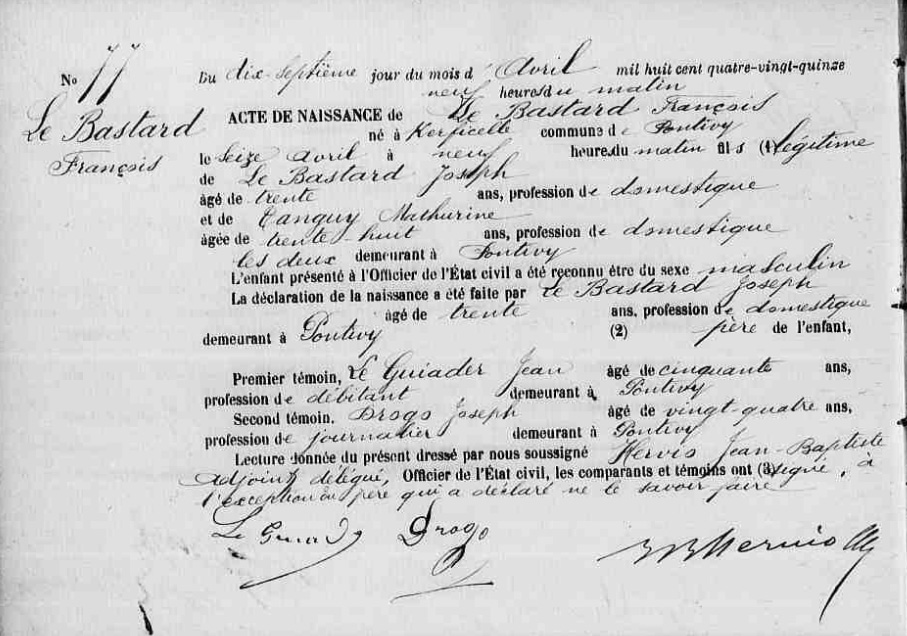 No 77
Le Bastard
François
Du dix-septième jour du mois d'Avril mil huit cent quatre-vingt-quinze
neuf heures du matin
ACTE DE NAISSANCE de Le Bastard François
né à Kerficelle commune de Pontivy
le seize avril à neuf heures du matin fils (1) légitime
de Le Bastard Joseph
âgé de trente ans, profession de domestique
et de Tanguy Mathurine
âgée de trente-huit ans, profession de domestique
les deux demeurant à Pontivy
L'enfant présenté à l'Officier de l'État civil a été reconnu être du sexe masculin
La déclaration de la naissance a été faite par Le Bastard Joseph
âgé de trente ans, profession de domestique
demeurant à Pontivy (2) père de l'enfant,
Premier témoin, Le Guiader Jean âgé de cinquante ans,
profession de débitant demeurant à Pontivy
Second témoin. Drogo Joseph âgé de vingt-quatre ans,
profession de journalier demeurant à Pontivy
Lecture donnée du présent dressé par nous soussigné Hervio Jean-Baptiste
adjoint délégué, Officier de l'État civil, les comparants et témoins ont (3) signé, à
l'exception du père qui a déclaré ne le savoir faire
Le Guiader Drogo JB Hervio